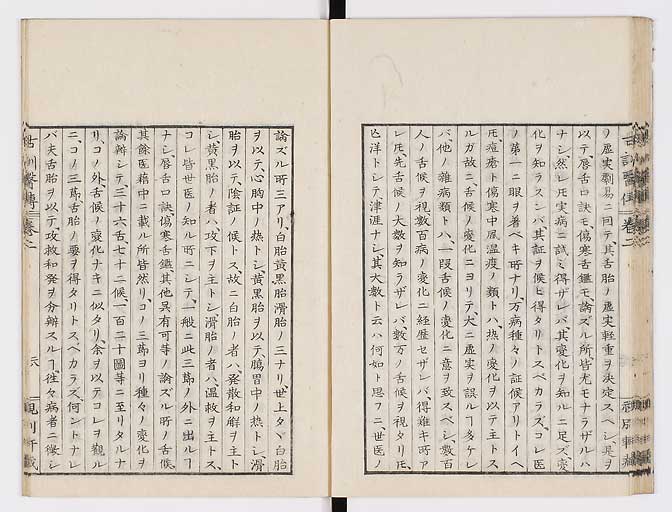 ノ虚実剛易ニ回テ其舌胎ノ虚実軽重ヲ決定スベシ、是ヲ
以テ、唇舌口訣モ、傷寒舌鑑モ、論ズル所皆尤モナラザルハ
ナシ、然レ𪜈実病ニ試ミ得ザレバ、其変化ヲ知ルニ足ズ、変
化ヲ知ラズンバ、其証ヲ候ヒ得タリトスベカラズ、コレ医
ノ第一ニ眼ヲ着ベキ所ナリ、万病種々ノ証候アリトイヘ
𪜈、痘瘡ト傷寒中風温疫ノ類トハ、熱ノ変化ヲ以テ主トス
ルガ故ニ、舌候ノ変化ニヨリテ、大ニ虚実ヲ誤ルヿ多ケレ
バ、他ノ雑病類トハ、一段舌候ノ変化ニ意ヲ致スベシ、数百
人ノ舌候ヲ視数百病ノ変化ニ経歴セザレバ、得難キ所ア
レ𪜈、先舌候ノ大数ヲ知ラザレバ、数万ノ舌候ヲ視タリ𪜈、
亡洋トシテ、津涯ナシ、其大数ト云ハ何如ト思フニ、世医ノ
論ズル所三アリ、白胎黄黒胎滑胎ノ三ナリ、世上タヾ白胎
ヲ以テ、心胸中ノ熱トシ、黄黒胎ヲ以テ、腸胃中ノ熱トシ、滑
胎ヲ以テ、陰証ノ候トス、故ニ白胎ノ者ハ、発散和解ヲ主ト
シ、黄黒胎ノ者ハ、攻下ヲ主トシ、滑胎ノ者ハ、温救ヲ主トス、
コレ皆世医ノ知ル所ニシテ、一般ニ此三節ノ外ニ出ルヿ
ナシ、唇舌口訣、傷寒舌鑑、其他呉有可等ノ論ズル所ノ舌候、
其餘医籍中ニ載ル所皆然リ、コノ三節ヨリ種々ノ変化ヲ
論辨シテ、三十六舌、七十二候、一百二十圖等ニ至リタルナ
リ、コノ外舌候ノ変化ナキニ似タリ、余ヲ以テコレヲ觀ル
ニ、コノ三節、舌胎ノ要ヲ得タリトスベカラズ、何ントナレ
バ、夫舌胎ヲ以テ、攻救和発ヲ分辨スルヿ、往々病者ニ徴シ